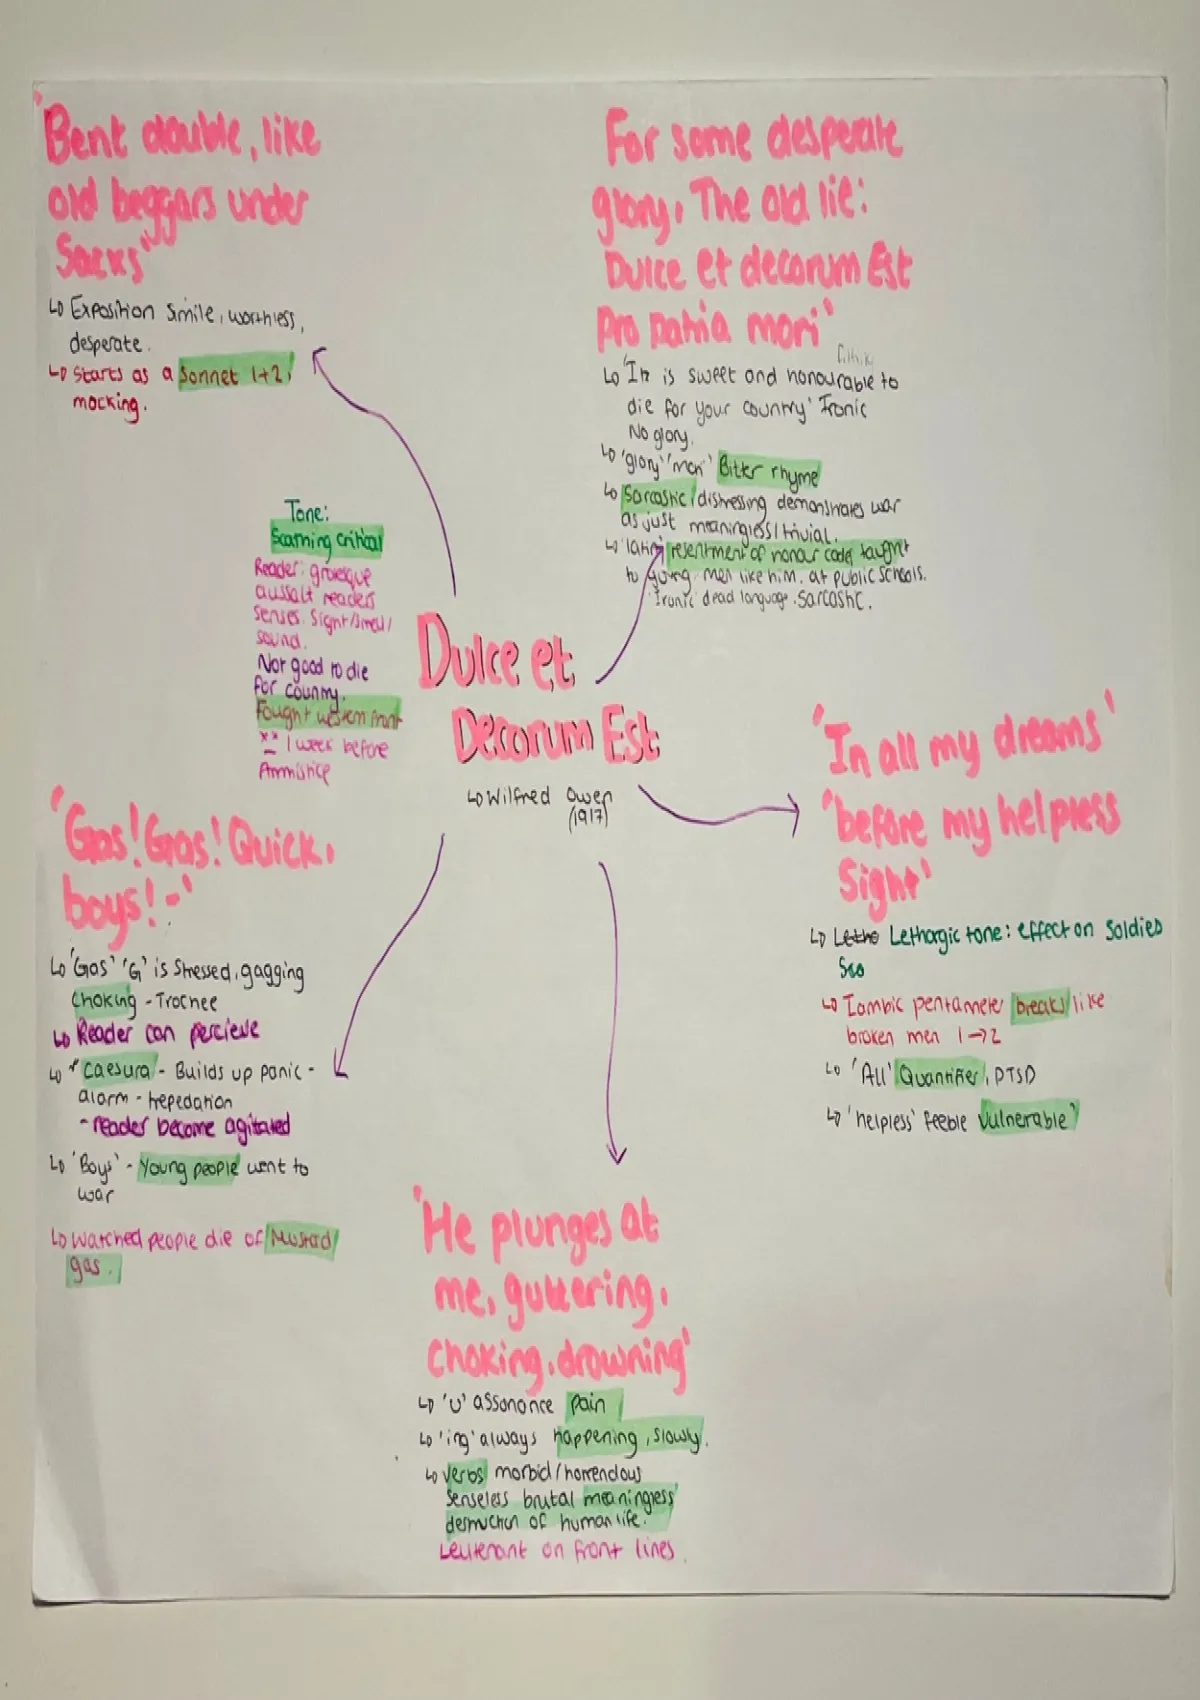 'Bent double, like
old beggars under
Sacks'
↳ Exposition Simile, worthless,
desperate.
↳ starts as a Sonnet 1+2,
mocking.
For some desperate
glory, The old lie:
Dulce et decorum Est
Pro patria mori'
↳ 'It is sweet and honourable to
die for your country' Ironic
No glory.
↳ 'glory' 'mori' Bitter rhyme
↳ Sarcastic/distressing demonstrates war
as just meaningless/trivial.
↳ 'latin' resentment of honour code taught
to young men like him, at public schools.
Ironic dead language. Sarcastic.
Tone:
Scathing Critical
Reader: grotesque
aussalt readers
senses. Sight/smell/
sound.
Not good to die
for country.
Fought western front
** 1 week before
Armistice
Dulce et
Decorum Est
↳ Wilfred Owen
(1917)
'In all my dreams'
'before my helpless
Sight'
↳ Letha Lethargic tone: effect on Soldies
↳ Iambic pentameter breaks like
broken men 1→2
↳ 'All' Quantifier, PTSD
↳ 'helpless' feeble Vulnerable'
'Gas! Gas! Quick,
boys! -'
↳ 'Gas' 'G' is stressed, gagging
choking - Trochee
↳ Reader can percieve
↳ * Caesura - Builds up panic -
alarm - trepedation
- reader become agitated
↳ 'Boys' - Young people went to
war
↳ Watched people die of Mustard
gas.
'He plunges at
me, guttering,
Choking, drowning'
↳ 'U' assonance pain
↳ 'ing' always happening, slowly.
↳ verbs morbid/horrendous
senseless brutal meaningless
destruction of human life.
Leutenant on front lines.